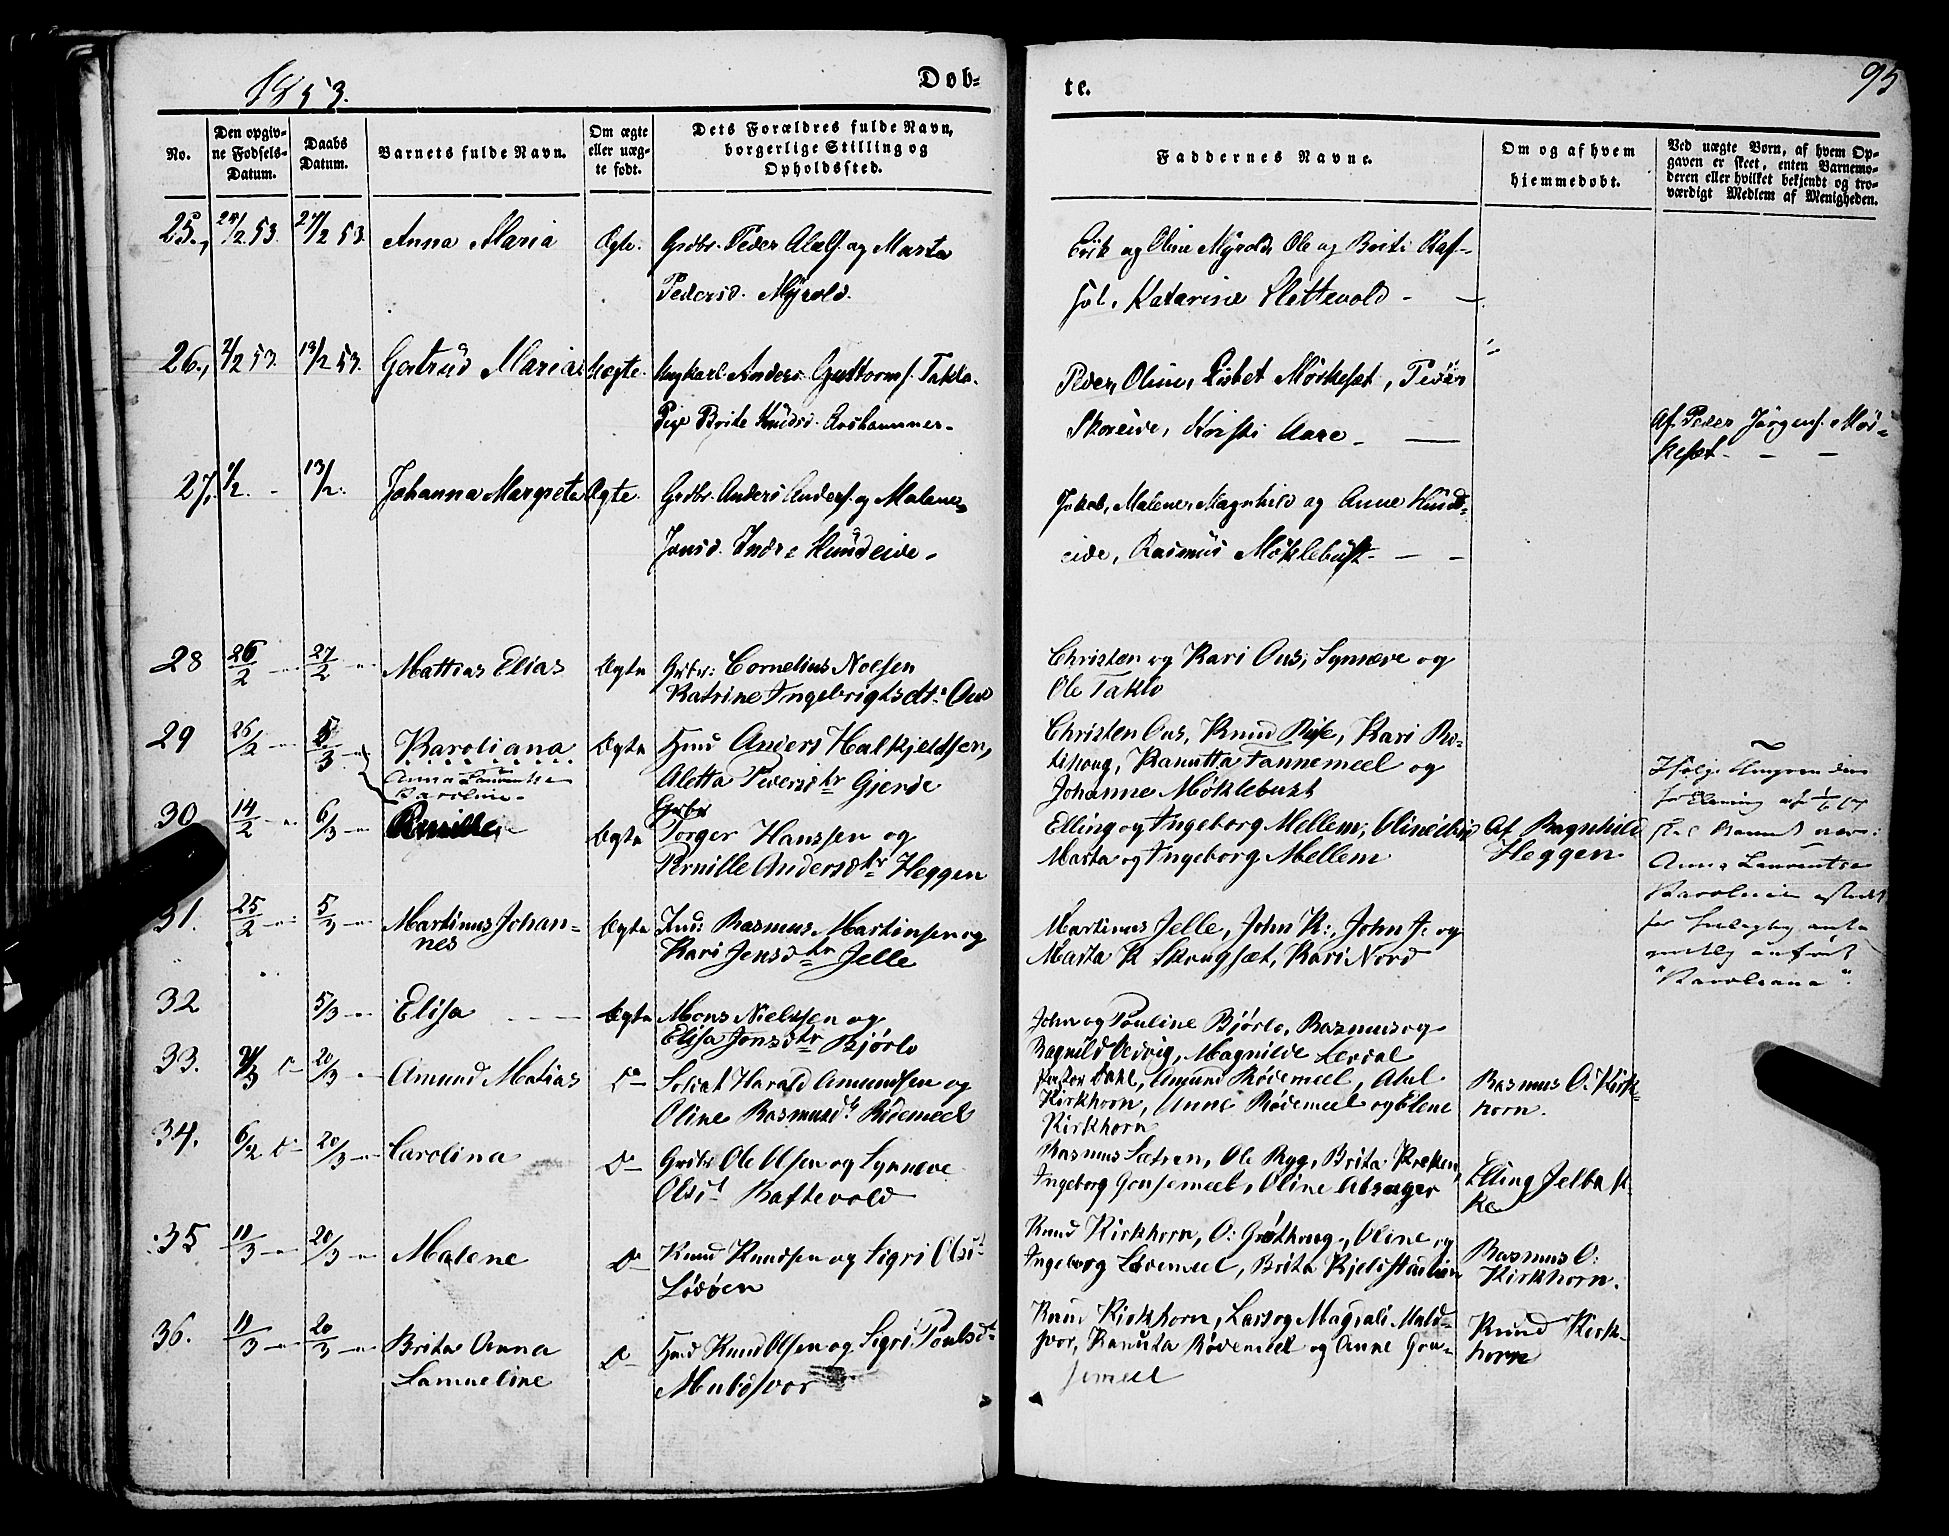 1853.
Døb-
te.
95
No.
Den opgiv-
ne Fødsels-
Datum.
Daabs
Datum.
Barnets fulde Navn.
Om ægte
eller uæg-
te født.
Dets Forældres fulde Navn,
borgerlige Stilling og
Opholdssted.
Faddernes Navne.
Om og af hvem
hjemmedøbt.
Ved uægte Børn, af hvem Op-
gaven er skeet, enten Barnemo-
deren eller hvilket bekjendt og tro-
værdigt Medlem af Menigheden.
25., /2 53. 27/2 53. Anna Maria Ægte. Grdbr. Peder Olesf. og Marta
Pedersd. Myrold.
Erik og Oline Myrold, Ole og Brite Raf-
Katarine Slettevold -
26., 2/2 53. 13/2 53. Gertrud Maria Uægte. Ungkarl Anders Guttormsf. Taklo.
Pige Brite Knudsd. Aarshammer.
Peder, Oline, Lisbet Mørkesæt, Peder
Skoreide, Kirsti Aare -
Af Peder Jørgensf. Mør-
kesæt - -
27, 1/2. - 13/2. Johanna Margrete Ægte. Grdbr. Anders Andersf. og Malene
Jonsd. Indre Hundeide.
Jakob, Malene, Magnhild og Anne Hund-
eide, Rasmus Møklebust - -
28 26/2 27/2 Mattias Elias Ægte Grbr: Cornelius Noesen
Katrine Ingebrigtsdtr Aus
Christen og Kari Aus, Synneve og
Ole Taklo
29 26/2 5/3 Karoliana Ægte Hmd Anders Halkjeldsen,
Aletta Pedersdtr Gjerde
Anna Laurentse
Karoline.
Christen Aus, Knud Rise, Kari Ro-
tihoug, Kanutta Tannemeel og
Johanne Møklebust
Ifølge
Anna Laurentse
"Karoliana".
30 14/2 6/3 Pernille Ægte Grbr
Torger Hanssen og
Pernille Andersdtr Heggen
Elling og Ingeborg Mellem, Oline
Marta og Ingeborg Mellem
Af Ragnhild
Heggen
31. 25/2 5/3 Martinus Johan-
nes Ægte Hmd: Rasmus Martinsen og
Kari Jensdtr Jelle
Martinus Jelle, John K:, John J: og
Marta K Skougsæt, Kari Nord
32 5/3 Elisa Ægte Mons Nielssen og
Elisa Jonsdtr Bjørlo
John og Pouline Bjørlo, Rasmus og
Ragnild Vedvig, Magnilde Levdal
33. /3 20/3 Amund Matias Do Soldat Harald Amundsen og
Oline Rasmusdt Rødemeel
Peder Dahl, Amund Rødemeel, Abel
Kirkhorn, Anne Rødemeel og Elene
Kirkhorn
Rasmus O: Kirk-
horn.
34. 6/2 Do 20/3 Carolina Do Grdbr Ole Olsen og Synneve
Olsdt Raftevold
Rasmus Sætren, Ole Ryg, Brita Kreken,
Ingeborg Gousemeel, Oline
Elling Jelbak
ke
35 11/3 20/3 Malene Do Knud Knudsen og Sigri Olsdt
Lødøen
Knud Kirkhorn, O: Grøthoug, Oline og
Ingeborg Lødemeel, Brita
Rasmus O:
Kirkhorn.
36. 11/3 20/3 Brita Anna
Samueline Do Hmd Knud Olsen og Sigri Poulsdt
Maldsvor
Knud Kirkhorn, Lars og Magdali Mald-
svor, Kanuta Rødemeel og Anne Gou-
semeel
Knud Kirk-
horn